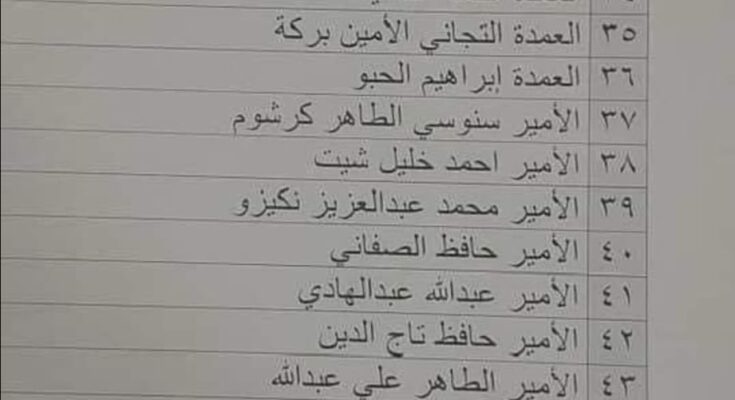 ٣٥ العمدة التجاني الأمين بركة
٣٦ العمدة إبراهيم الحبو
٣٧ الأمير سنوسي الطاهر كرشوم
٣٨ الأمير احمد خليل شيت
٣٩ الأمير محمد عبدالعزيز نكيزو
٤٠ الأمير حافظ الصفاني
٤١ الأمير عبدالله عبدالهادي
٤٢ الأمير حافظ تاج الدين
٤٣ الأمير الطاهر علي عبدالله